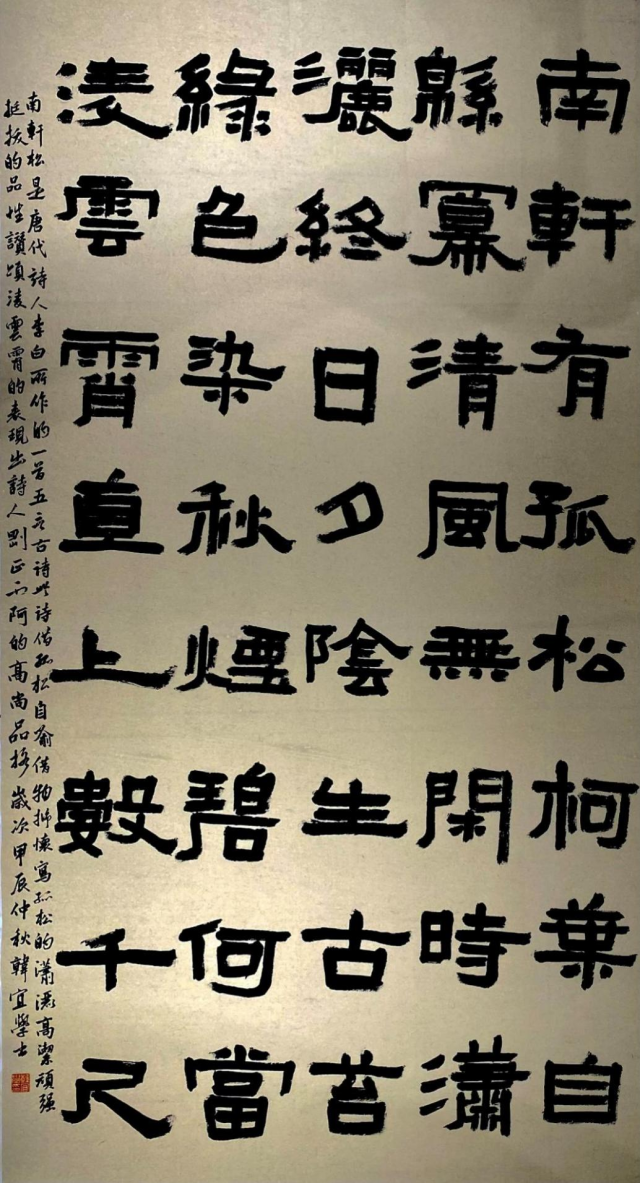 南軒有孤松柯葉自
緜冪清風無閑時瀟
灑終日夕陰生古苔
綠色染秋煙碧何當
凌雲霄直上數千尺
南軒松是唐代詩人李白所作的一首五言古詩此詩借孤松自喻借物抒懷寫孤松的瀟洒高潔頑强
挺拔的品性讚頌凌雲霄的表現出詩人剛正不阿的高尚品格歲次甲辰仲秋韓宜學士